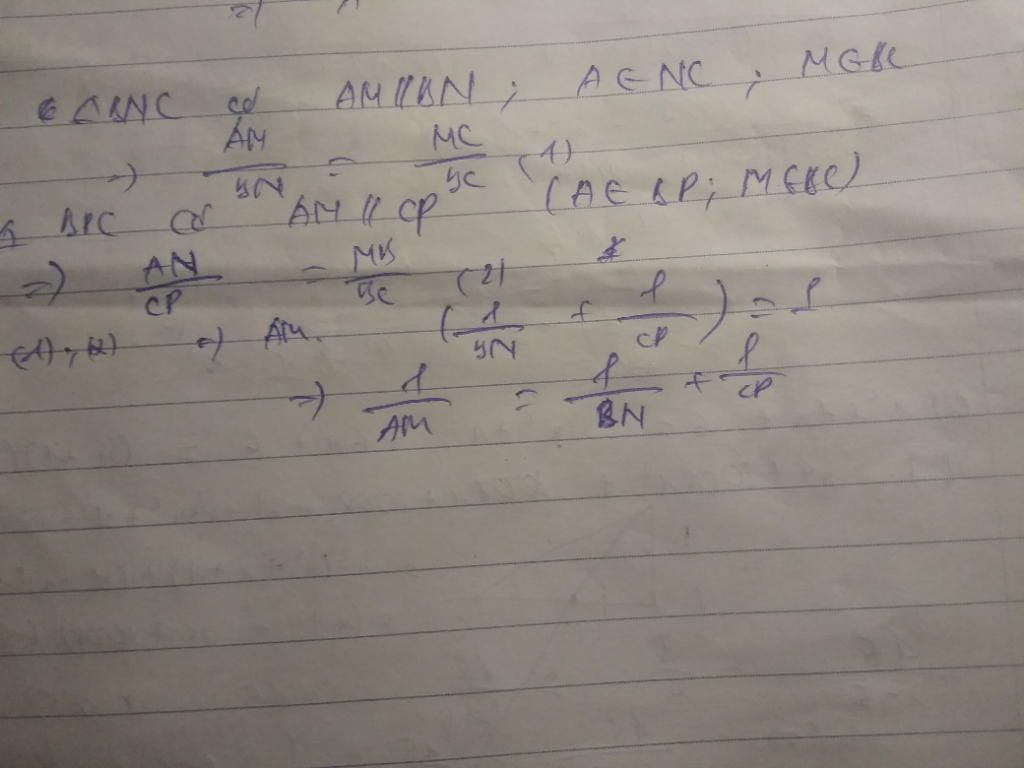 ΔBNC có AM//BN; A∈NC; M∈BC
=> AM/BN = MC/BC (1)
Δ BPC có AM//CP (A∈BP; M∈BC)
=> AN/CP = MB/BC (2)
(1); (2) => AM. (1/BN + 1/CP) = 1
=> 1/AM = 1/BN + 1/CP